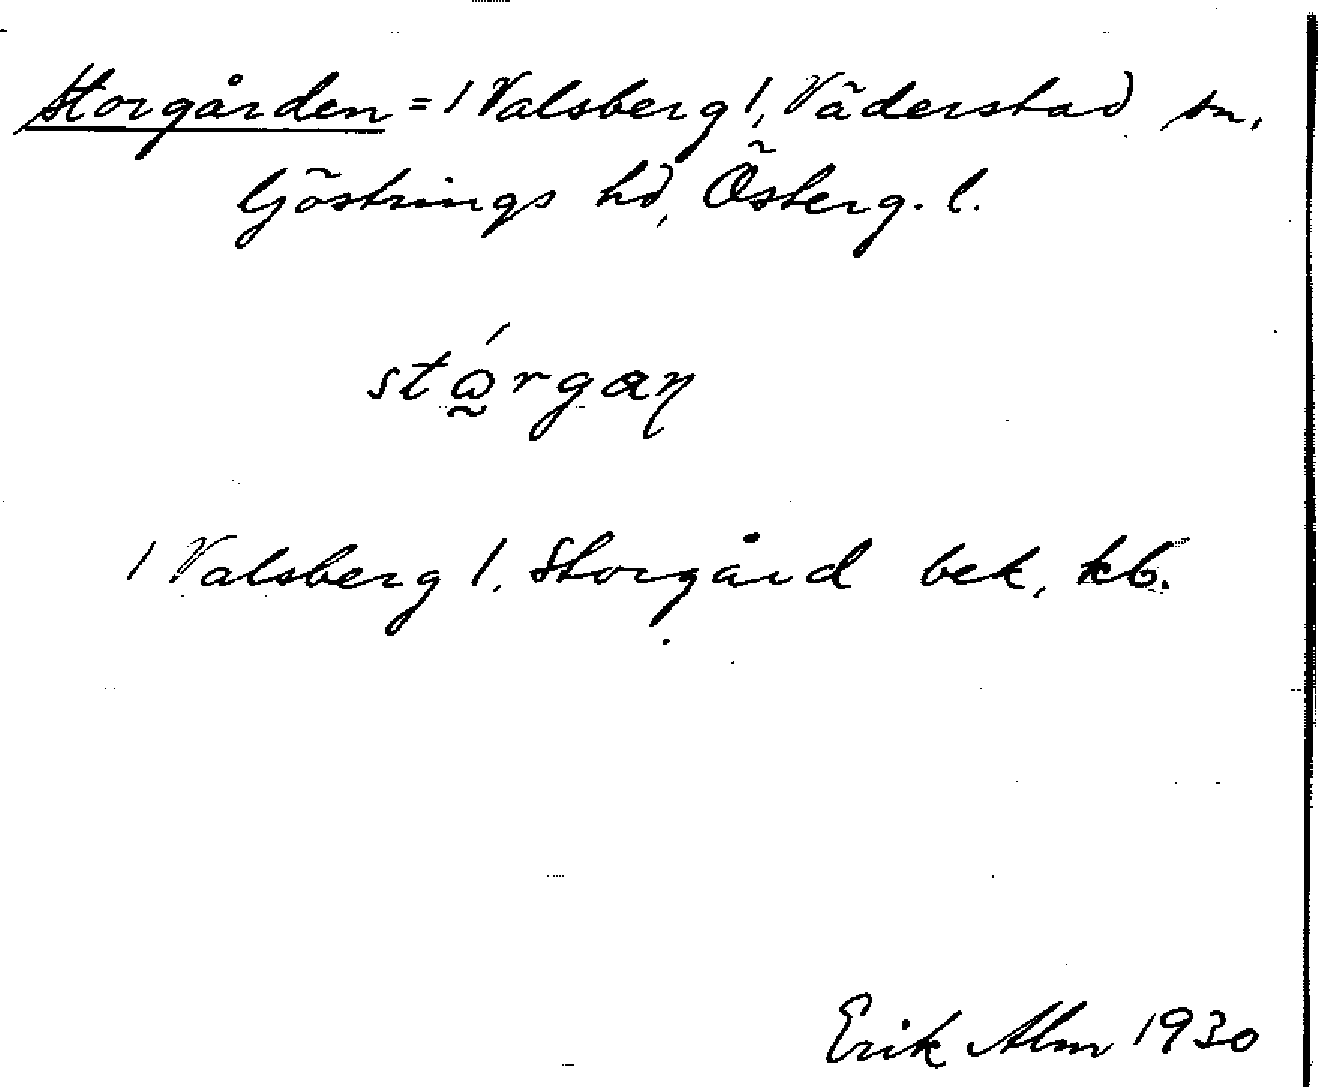 Storgården = / Valsberg /, Väderstad sn,
Göstrings hd, Österg. l.
stώ̰rgaꞃ
/ Valsberg /, Storgård bek, kb.
Erik Alm 1930